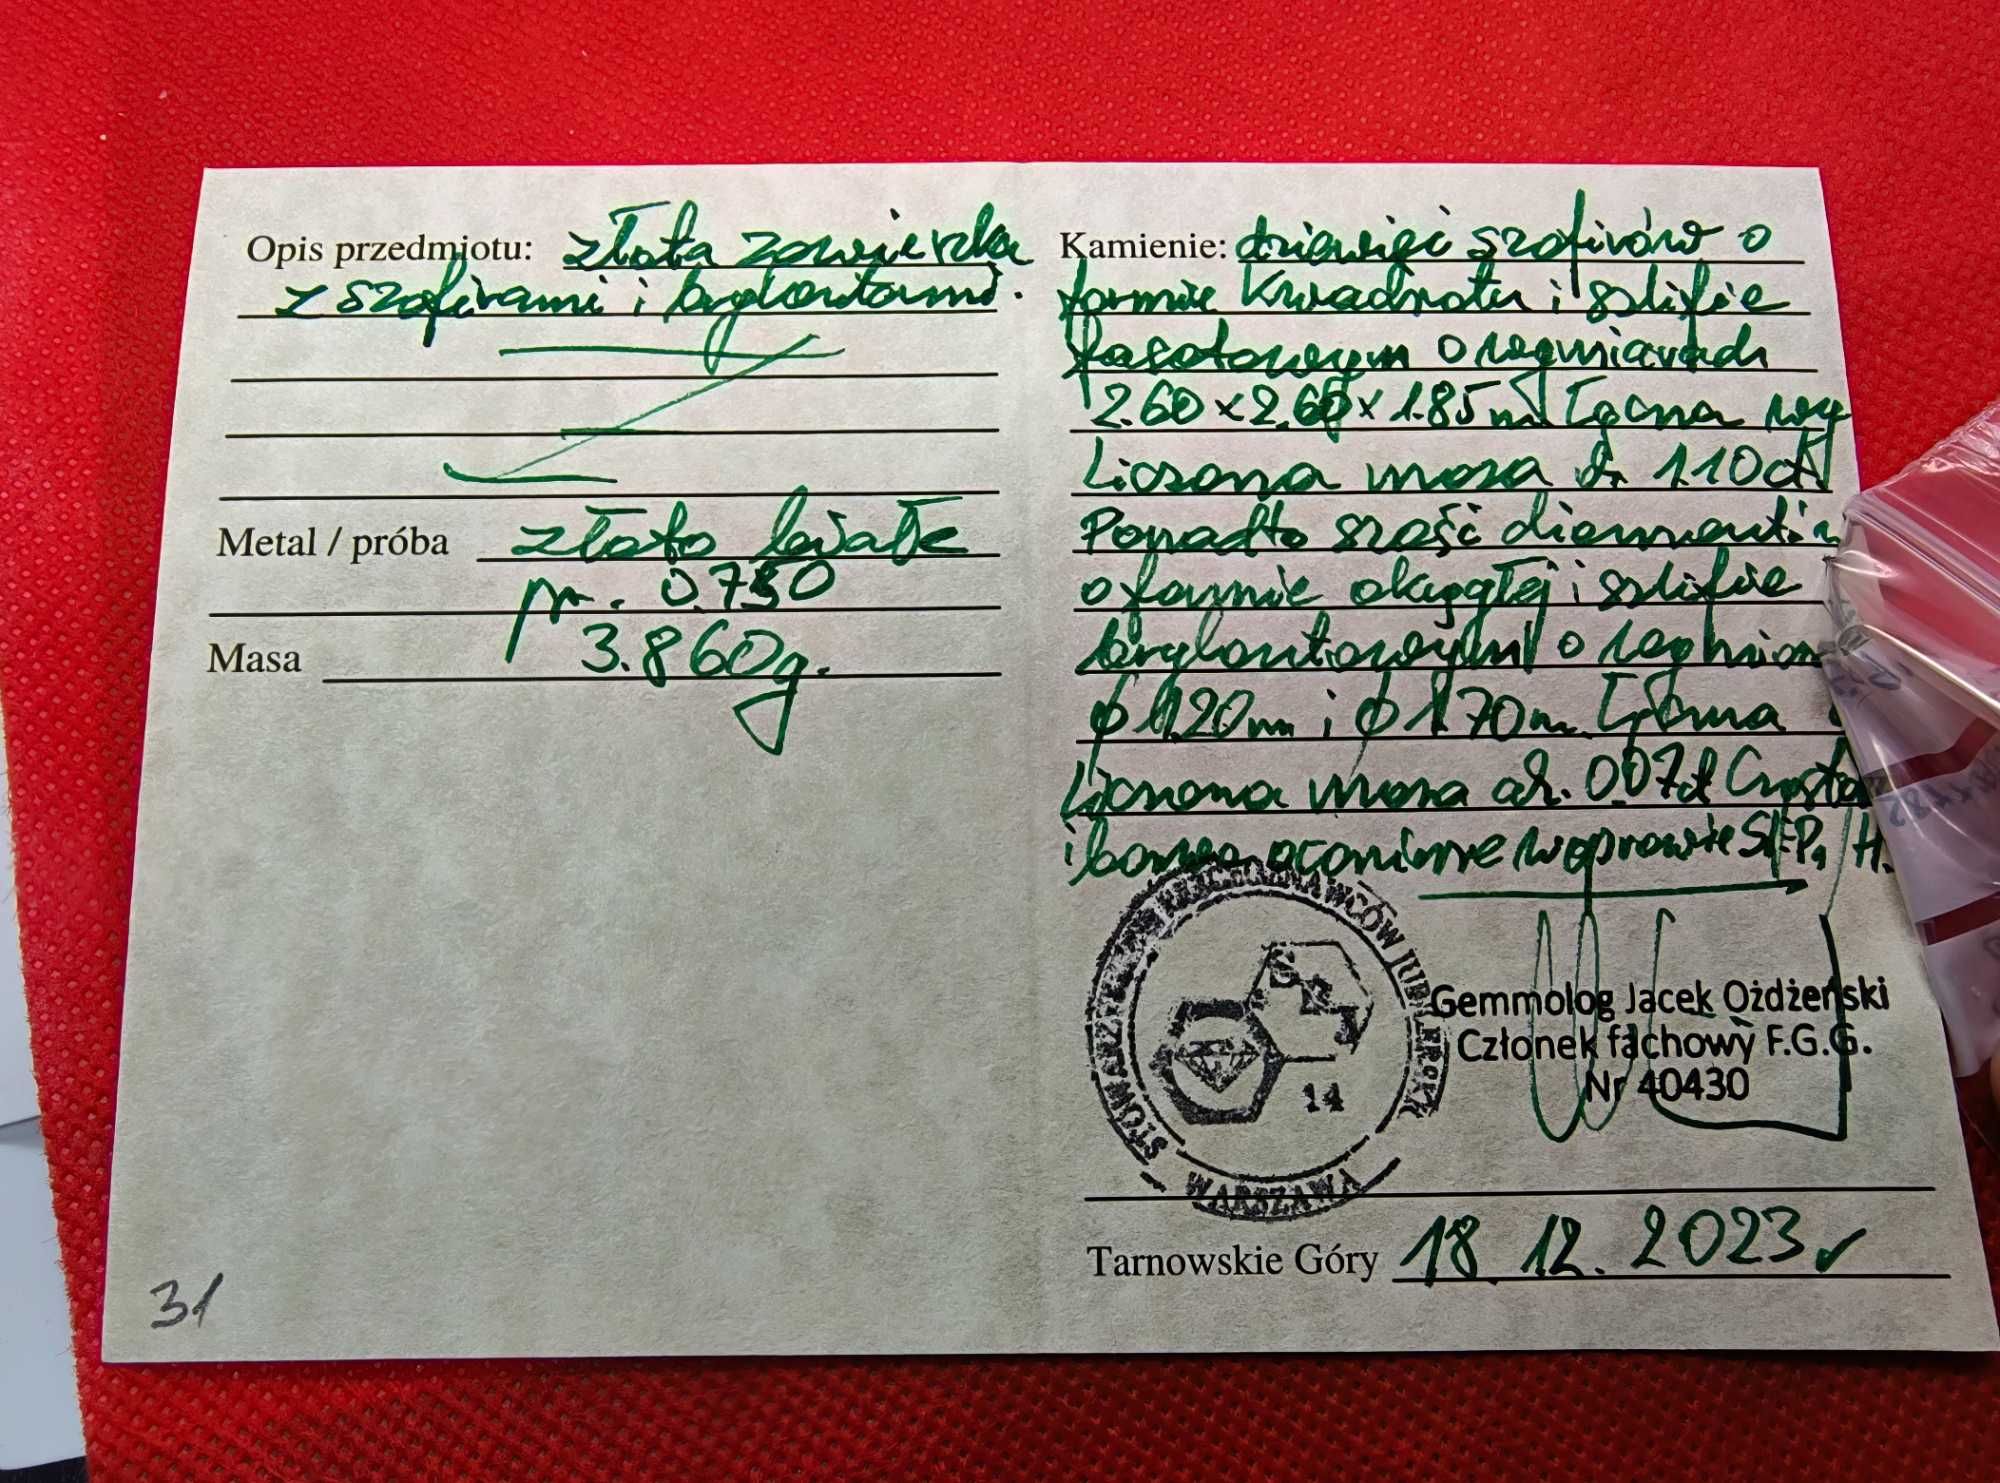 Opis przedmiotu: złota zawieszka
z szafirami i brylantami.
Metal / próba złoto białe
pr. 0.750
Masa 3.860g.
31
Kamienie: dziewięć szafirów o
formie kwadratu i szlifie
fasetowym o wymiarach
2.60 x 2.60 x 1.85 m Łączna wy
liczona masa 1.10ct
Ponadto sześć diamentów
o formie okrągłej i szlifie
brylantowym o
ϕ 1.20m i ϕ 1.70m. Łączna
liczona masa ok. 0.07ct Czysto
i barwa ocenione w oprawie SI-P1 H.
STOWARZYSZENIE RZECZOZNAWCÓW JUBILERSKICH
SRJ
14
WARSZAWA
Gemmolog Jacek Ożdżeński
Członek fachowy F.G.G.
Nr 40430
Tarnowskie Góry 18.12.2023